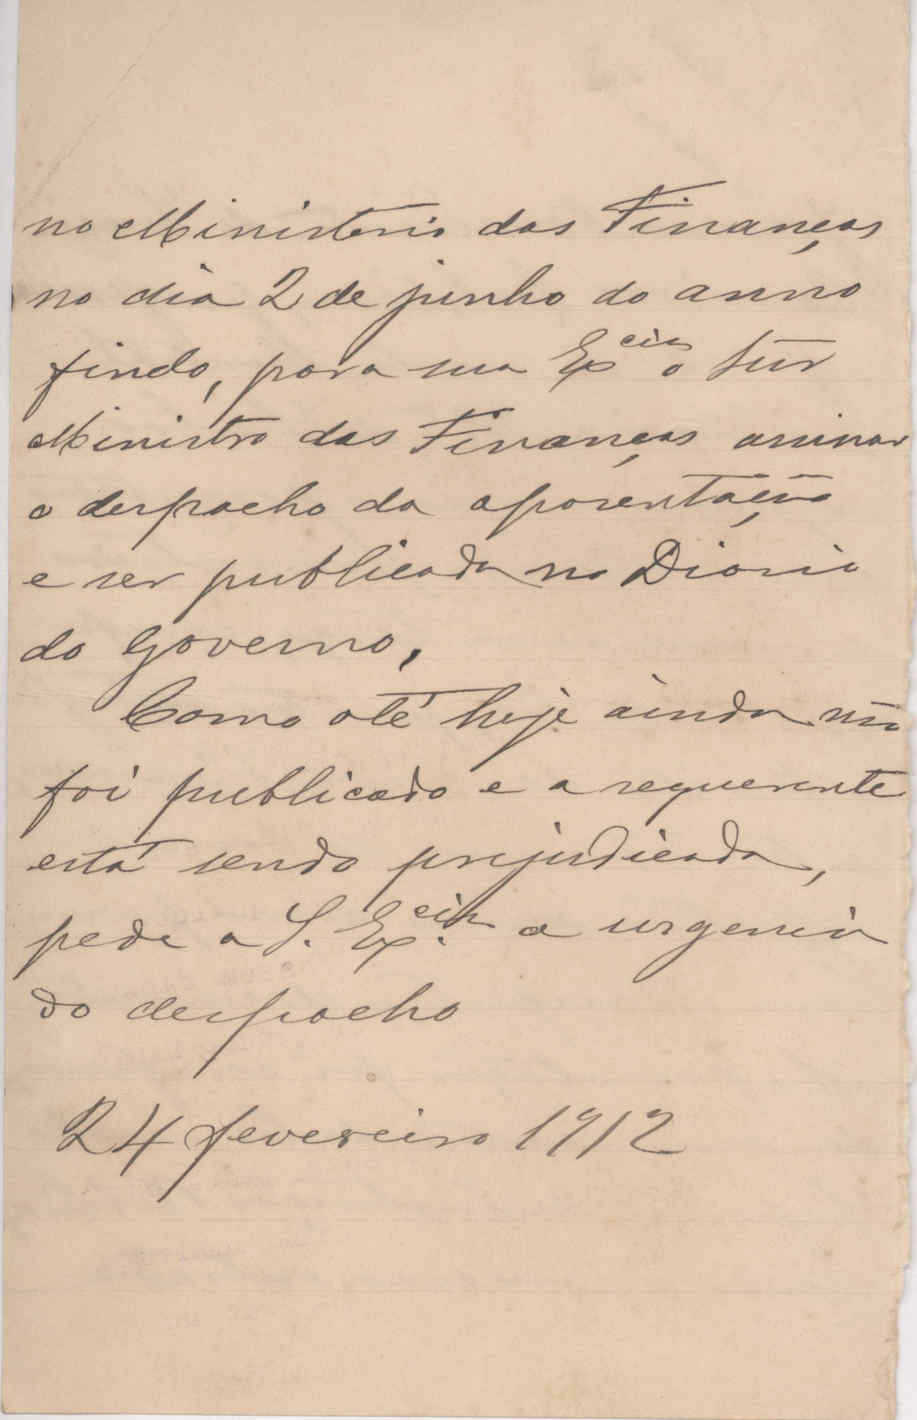 no Ministerio das Finanças
no dia 2 de junho do anno
findo, para sua Ex.cia o Snr
Ministro das Finanças assinar
o despacho da aposentação
e ser publicada no Diario
do Governo,
Como até hoje ainda não
foi publicado e a requerente
está sendo prejudicada,
pede a S. Ex.cia a urgencia
do despacho
24 fevereiro 1912